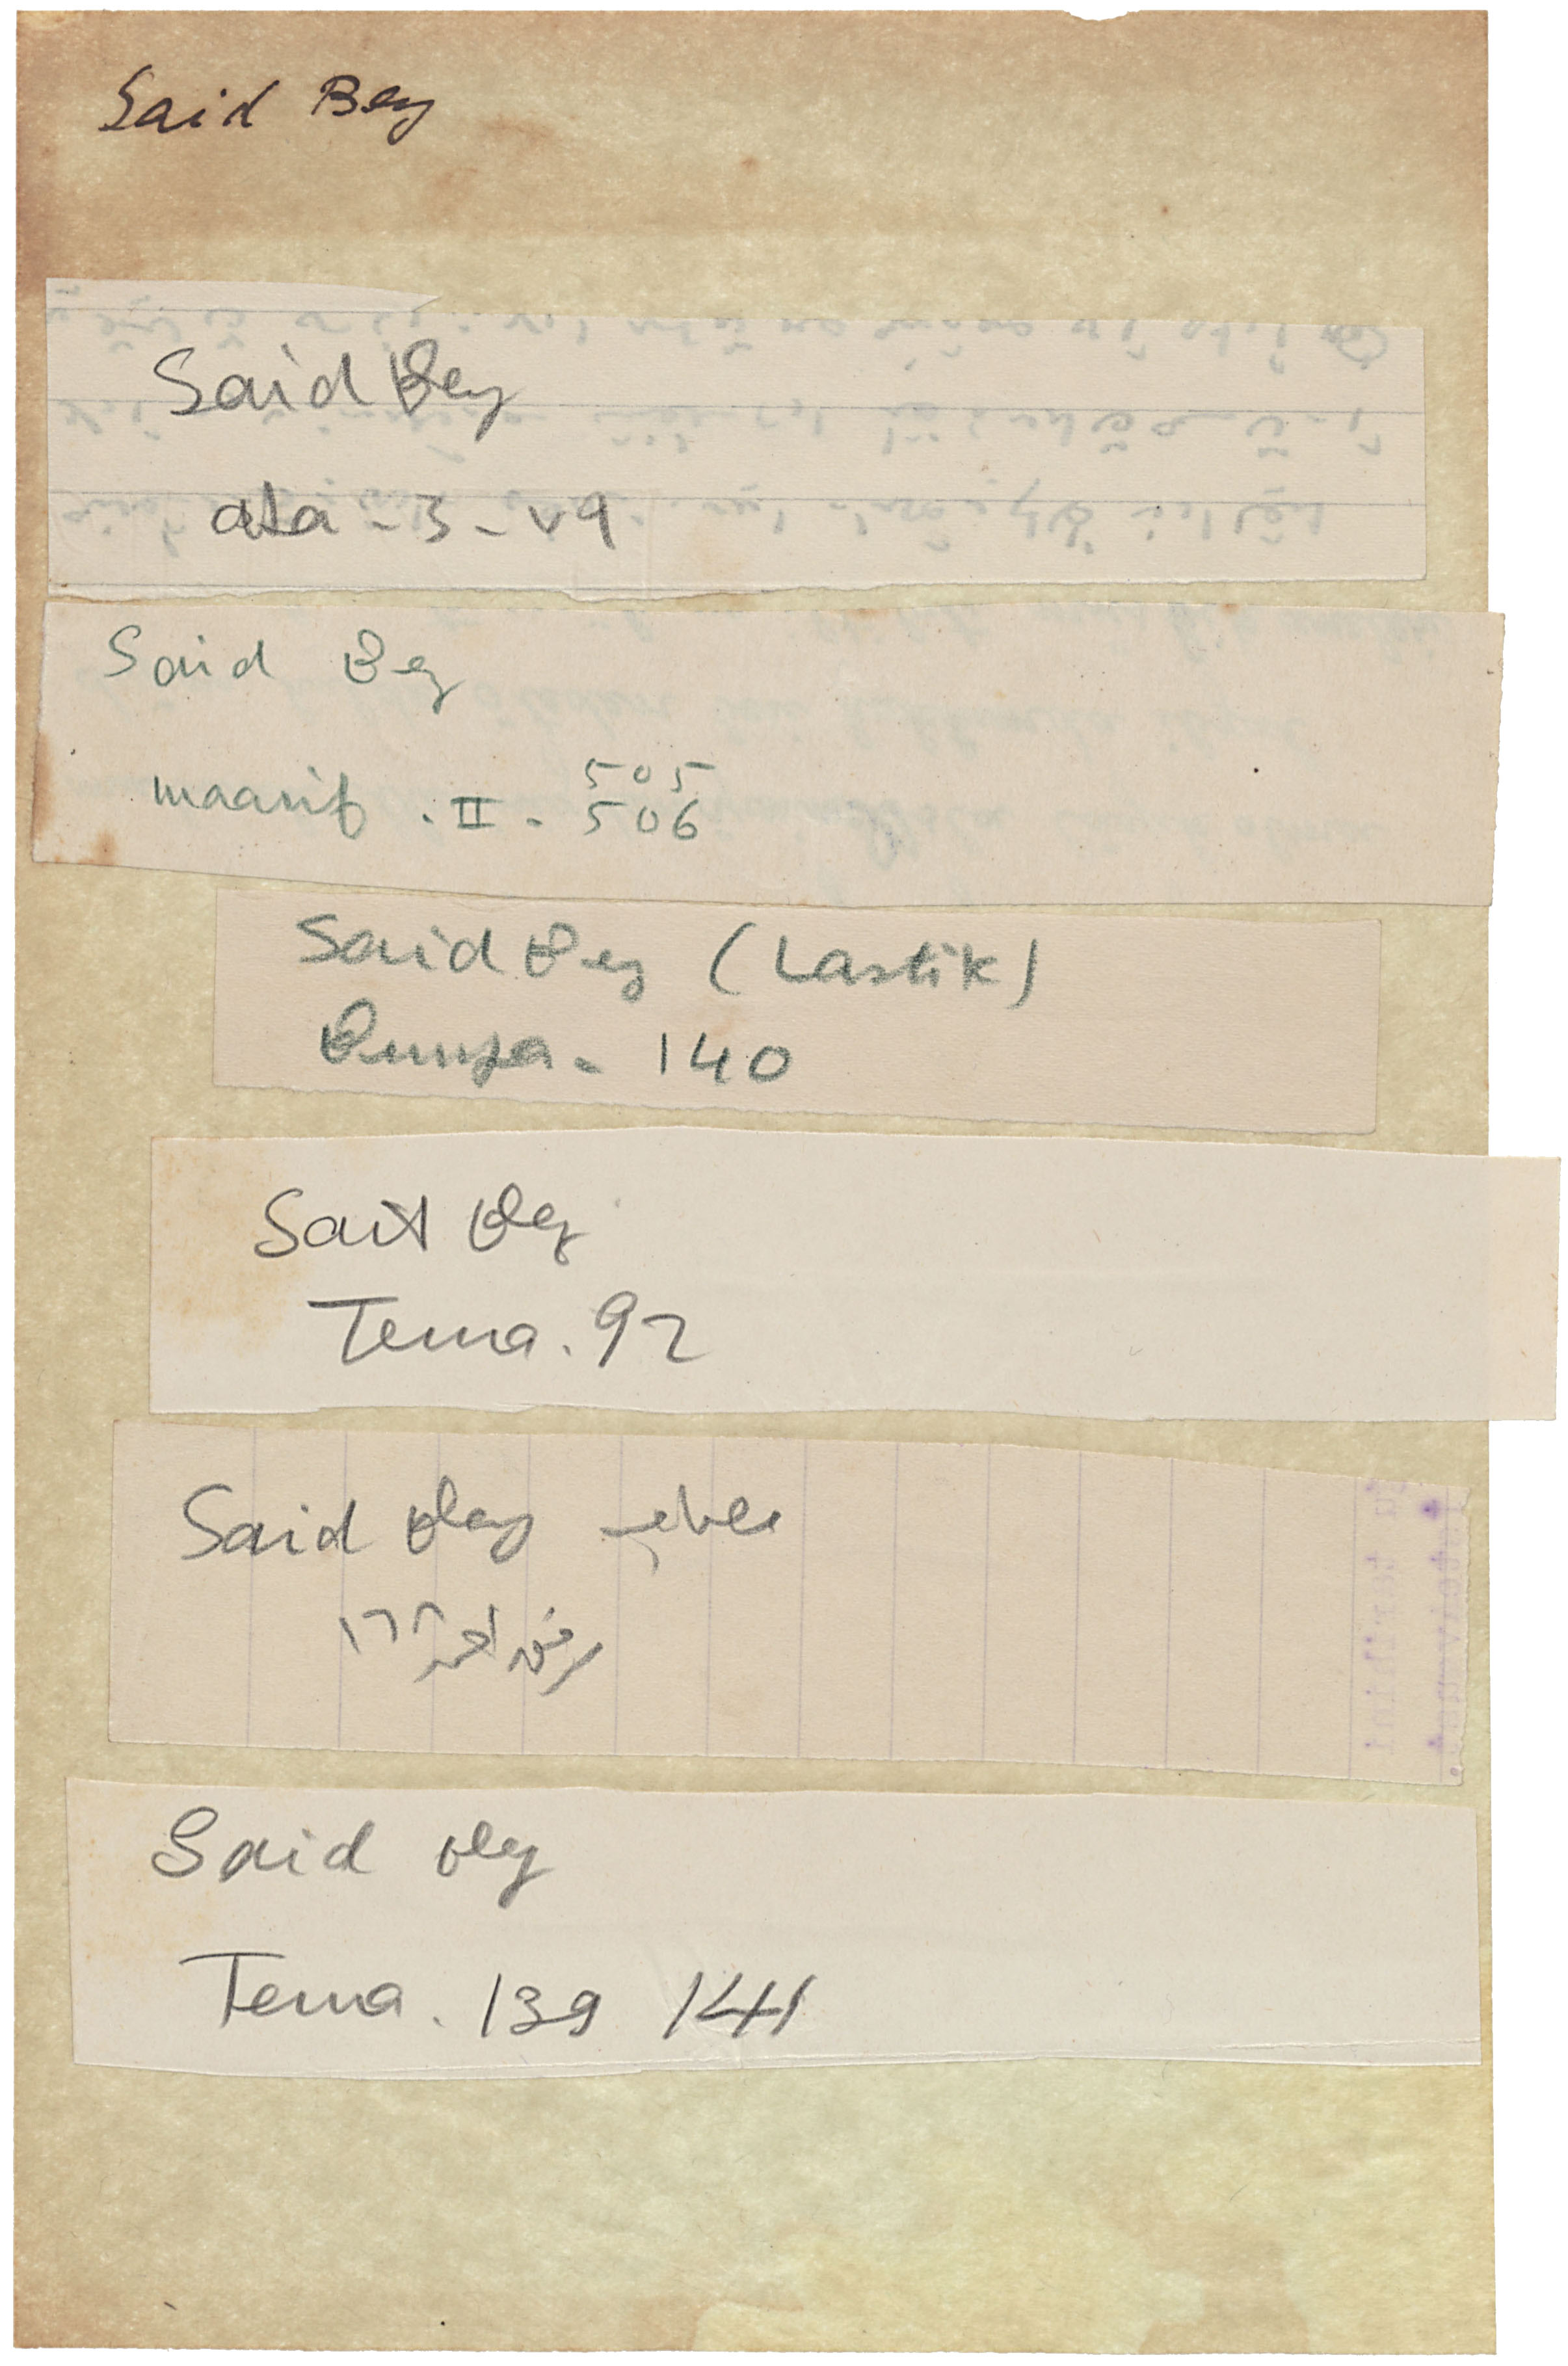 Said Bey
Said Bey
ata - 3 - v9
Said Bey
maarif . II . 505
506
Said Bey (Lastik)
140
Sait Bey
Tema . 92
Said Bey
رفیق احمد ١٦٢
Said Bey
Tema . 139 141